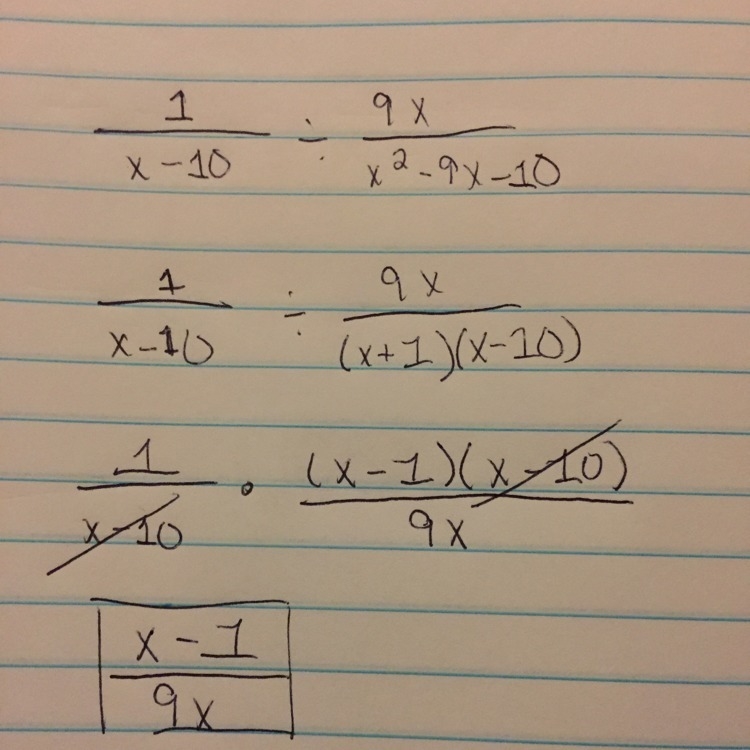 1/(x-10) ÷ 9x/(x²-9x-10)
1/(x-10) ÷ 9x/((x+1)(x-10))
1/(x-10) · (x-1)(x-10)/9x
(x-1)/9x